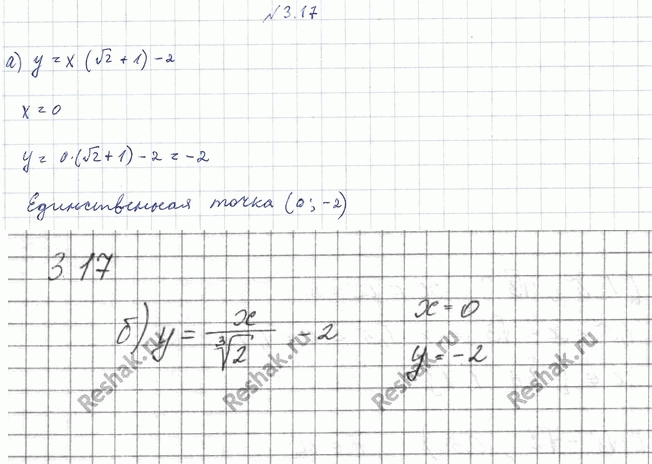 №3.17
а) y = x (√2 + 1) - 2
x = 0
y = 0·(√2+1) - 2 = -2
Единственная точка (0; -2)
3 17
б) y = x/∛2 - 2
x = 0
y = -2
Reshak.ru Reshak.ru Reshak.ru Reshak.ru